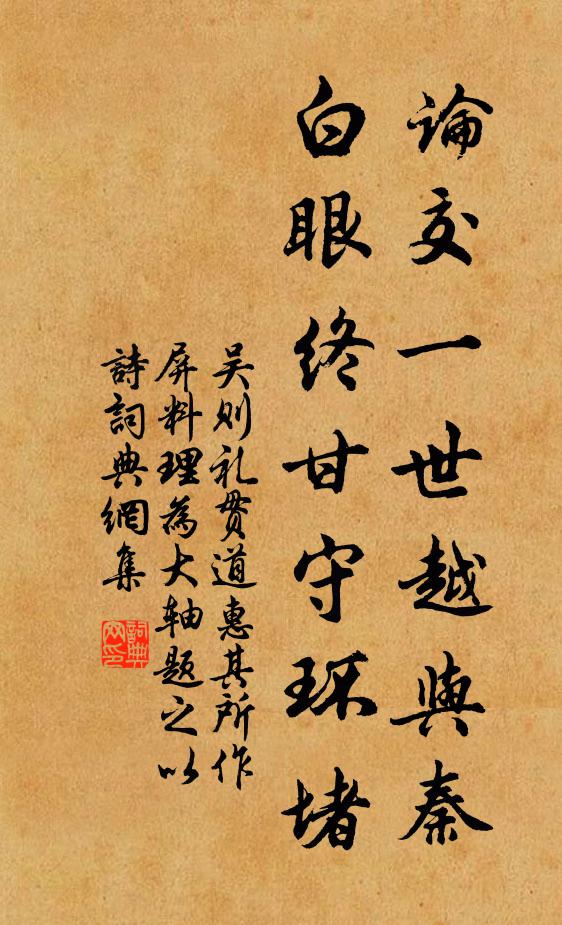 論交一世越與秦
白眼終甘守环堵
吴则礼贯道惠其所作
屏料理為大轴题之以
詩詞典網集
詞典
网印